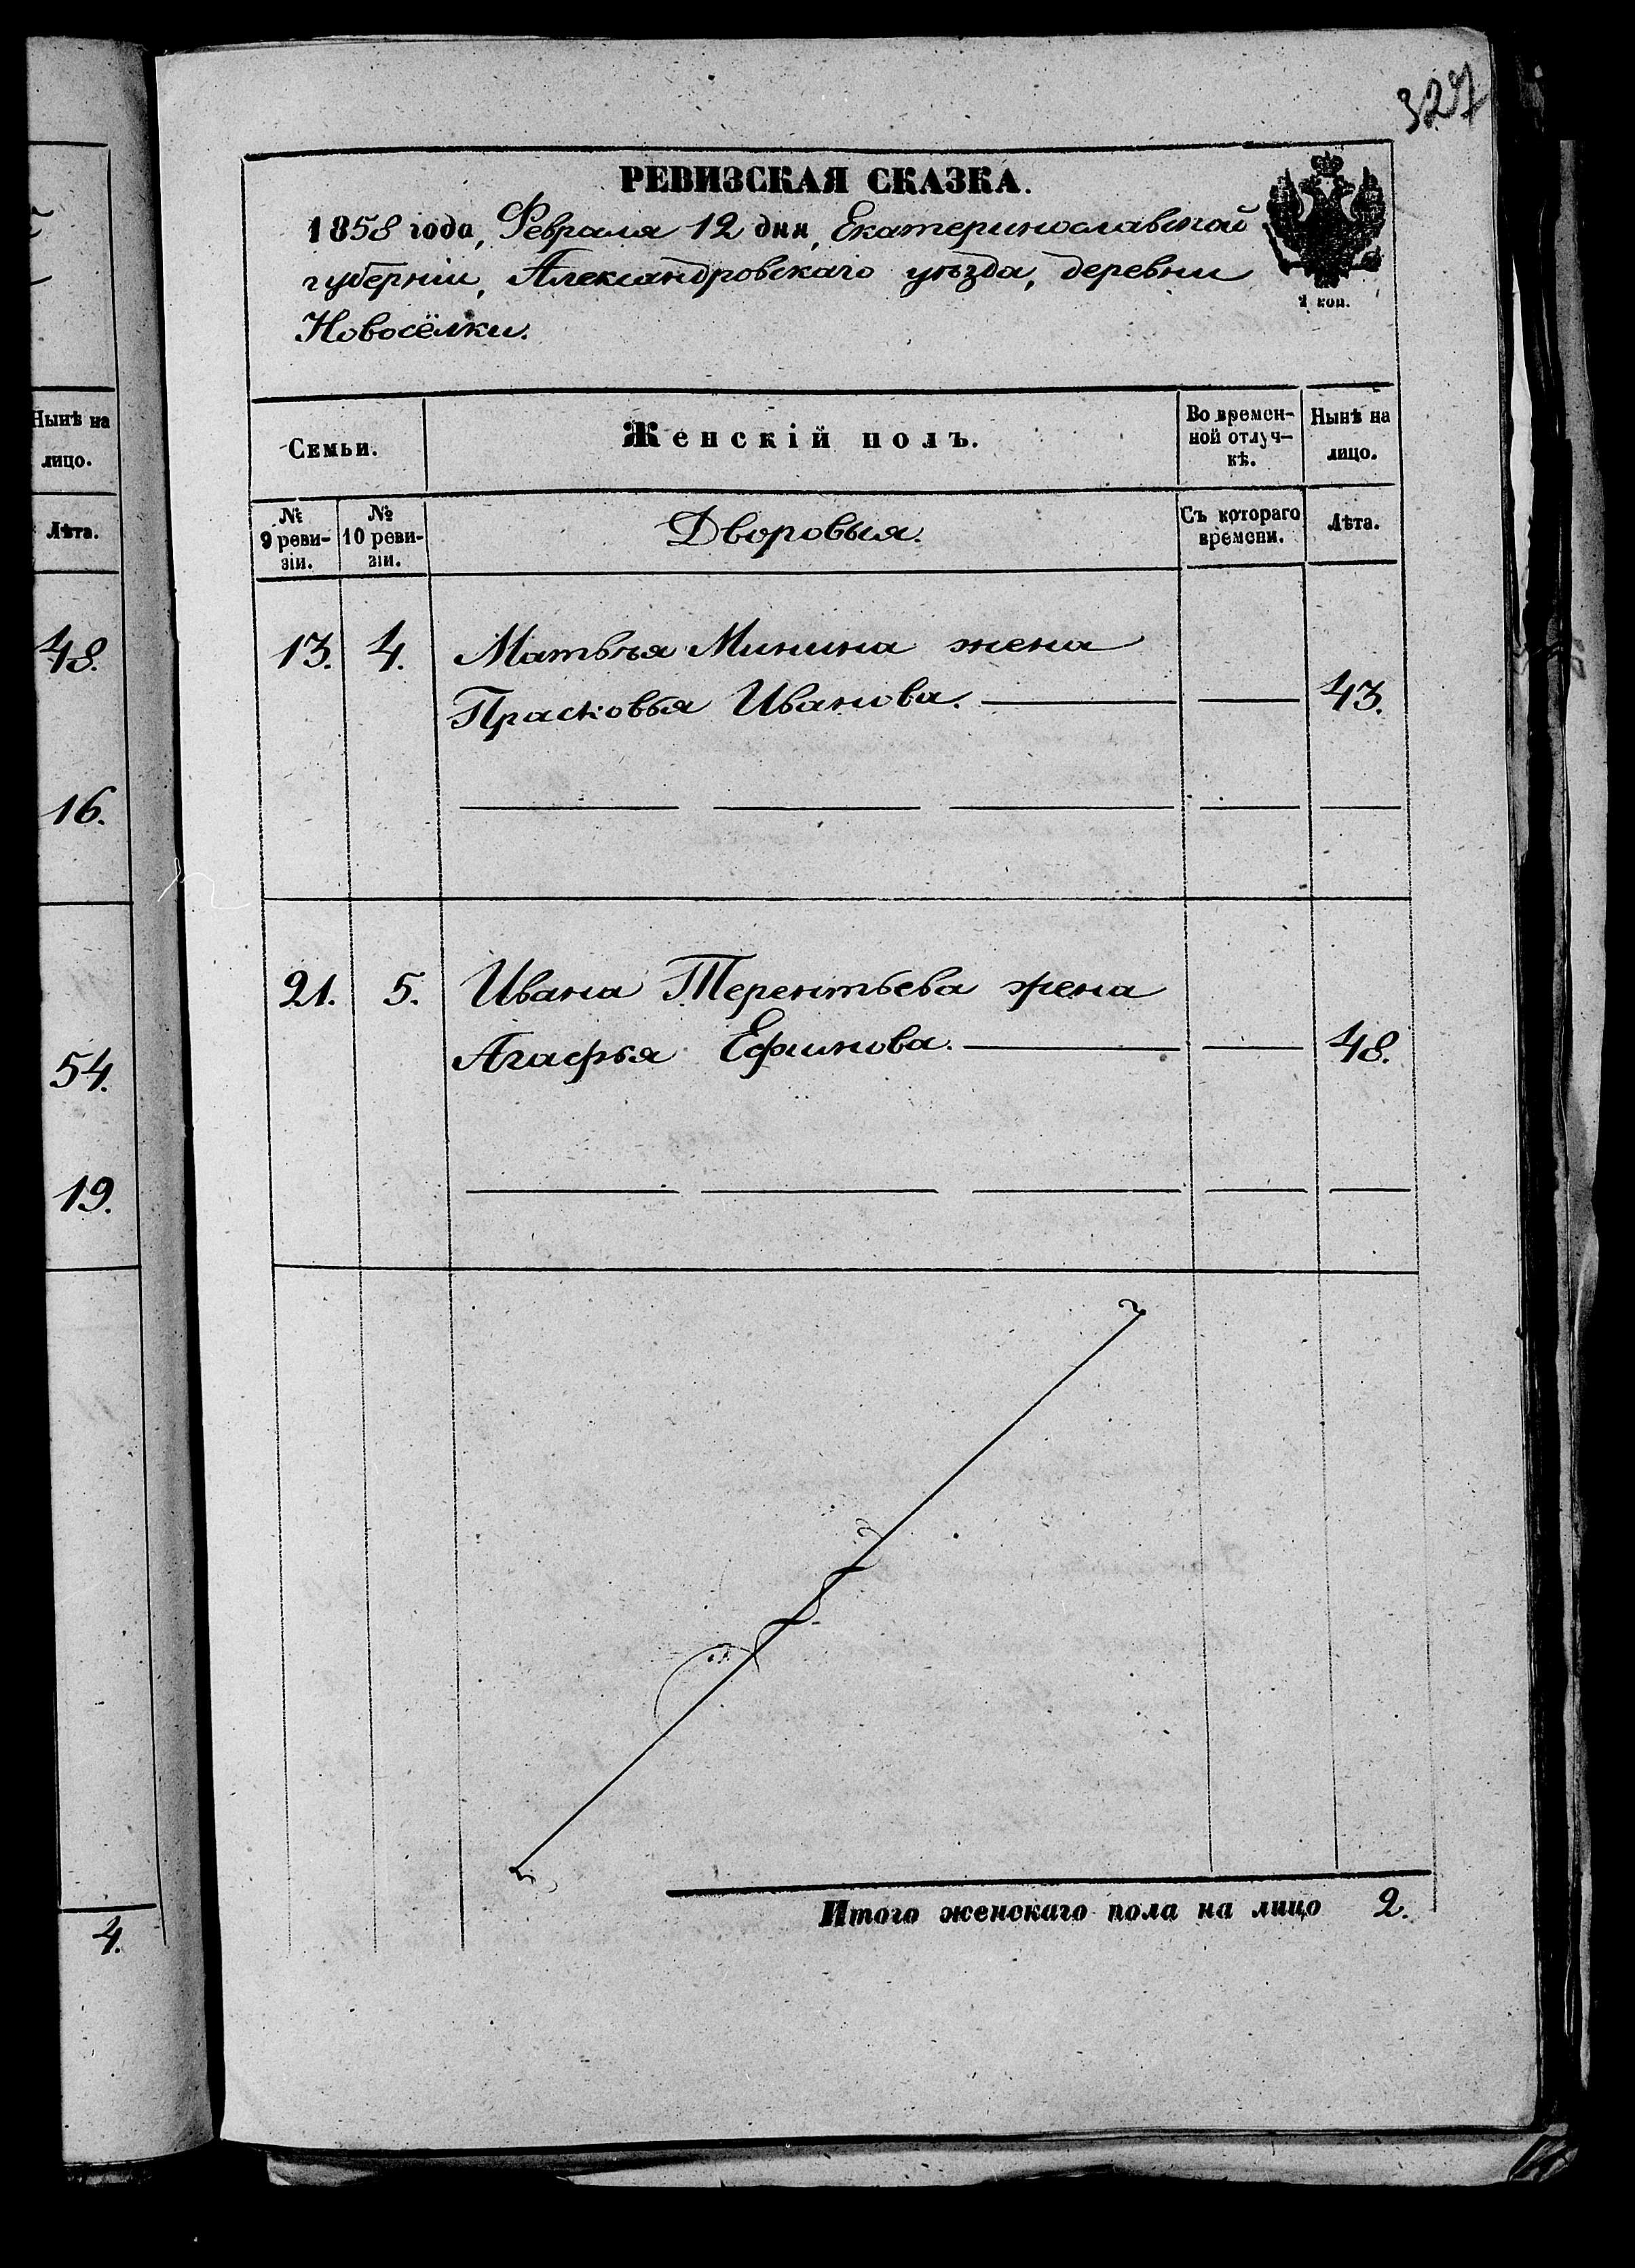 327
РЕВИЗСКАЯ СКАЗКА.
1858 года, Февраля 12 дня, Екатеринославской
губерніи, Александровскаго уѣзда, деревни
Новосёлки.
2 коп.
Нынѣ на
лицо.
Лѣта.
48.
16.
54.
19.
4.
Семьи.
Женскій полъ.
Во времен-
ной отлуч-
кѣ.
Нынѣ на
лицо.
№
9 реви-
зіи.
№
10 реви-
зіи.
Дворовыя.
Съ котораго
времени.
Лѣта.
13. 4. Матвѣя Минина жена
Прасковья Иванова. 43.
21. 5. Ивана Терентьева жена
Агафья Ефимова. 48.
Итого женскаго пола на лицо 2.